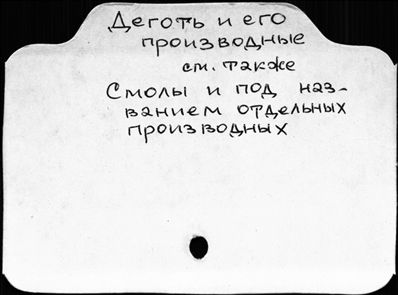 Деготь и его
производные
см. также
Смолы и под наз-
ванием отдельных
производных